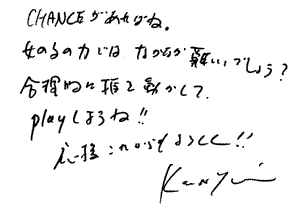 CHANCEがあれがね。
女の子の力では なかなか難しいでしょう?
合理的に指を動かして、
playしようね!!
応援これからもよろしく!!